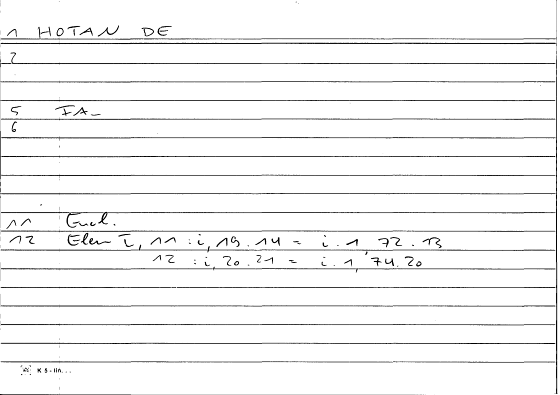 1 HOTAN DE
2
5 IA_
6
11 Eucl.
12 Elem I, 11 : i, 19.14 = i.1, 72.13
12 : i, 20.21 = i.1, 74.20
K 5-IIn...